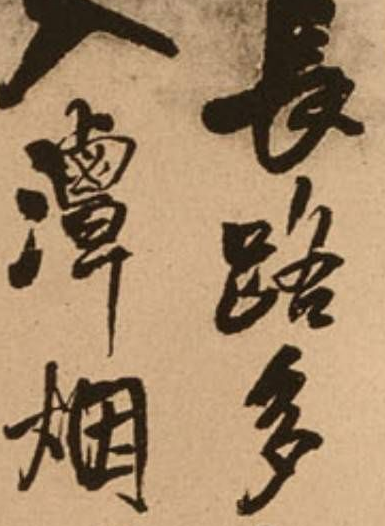 長路多
入潭烟